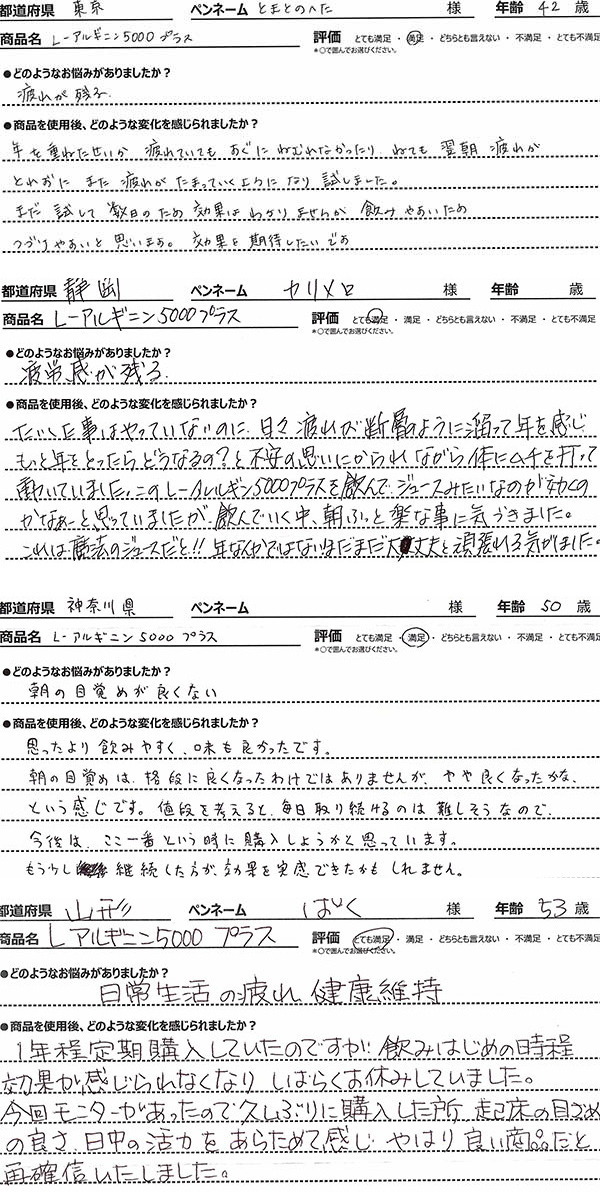 都道府県 東京 ペンネーム とまとのへた 様 年齢 42 歳
商品名 L-アルギニン5000プラス 評価 とても満足・満足・どちらとも言えない・不満足・とても不満足
*○で囲んでお選びください。
●どのようなお悩みがありましたか?
疲れが残る
●商品を使用後、どのような変化を感じられましたか?
年を重ねたせいか 疲れていても すぐに ねむれなかったり ねても 翌朝 疲れが
とれずに また 疲れが たまっていくように なり 試しました。
まだ 試して 数日のため 効果は わかりませんが 飲みやすいため
つづけやすいと 思います。 効果を 期待したいです
都道府県 静岡 ペンネーム カリメロ 様 年齢 歳
商品名 L-アルギニン5000プラス 評価 とても満足・満足・どちらとも言えない・不満足・とても不満足
*○で囲んでお選びください。
●どのようなお悩みがありましたか?
疲労感が残る
●商品を使用後、どのような変化を感じられましたか?
たいした事はやっていないのに、日々疲れが断層のように溜って年を感じ
もっと年をとったらどうなるの?と不安の思いにかられながら体にムチを打って
働いていました。このL-アルギニン5000プラスを飲んで、ジュースみたいなのが効くの
かなぁーと思っていましたが、飲んでいく中、朝ふっと楽な事に気づきました。
これは魔法のジュースだと!!年なんかではないまだまだ大丈夫と頑張れる気がしました。
都道府県 神奈川県 ペンネーム 様 年齢 50 歳
商品名 L-アルギニン5000プラス 評価 とても満足・満足・どちらとも言えない・不満足・とても不満足
*○で囲んでお選びください。
●どのようなお悩みがありましたか?
朝の目覚めが良くない
●商品を使用後、どのような変化を感じられましたか?
思ったより飲みやすく、味も良かったです。
朝の目覚めは、格段に良くなったわけではありませんが、やや良くなったかな、
という感じです。値段を考えると、毎日取り続けるのは難しそうなので、
今後は、ここ一番という時に購入しようかと思っています。
もう少し継続した方が、効果を実感できたかもしれません。
都道府県 山形 ペンネーム はく 様 年齢 53 歳
商品名 L アルギニン5000 プラス 評価 とても満足・満足・どちらとも言えない・不満足・とても不満足
*○で囲んでお選びください。
●どのようなお悩みがありましたか?
日常生活の疲れ、健康維持
●商品を使用後、どのような変化を感じられましたか?
1年程定期購入していたのですが、飲みはじめの時程
効果が感じられなくなり しばらくお休みしていました。
今回モニターがあったので久しぶりに購入した所 起床の目ざめ
の良さ、日中の活力を あらためて感じ やはり 良い商品だと
再確信いたしました。